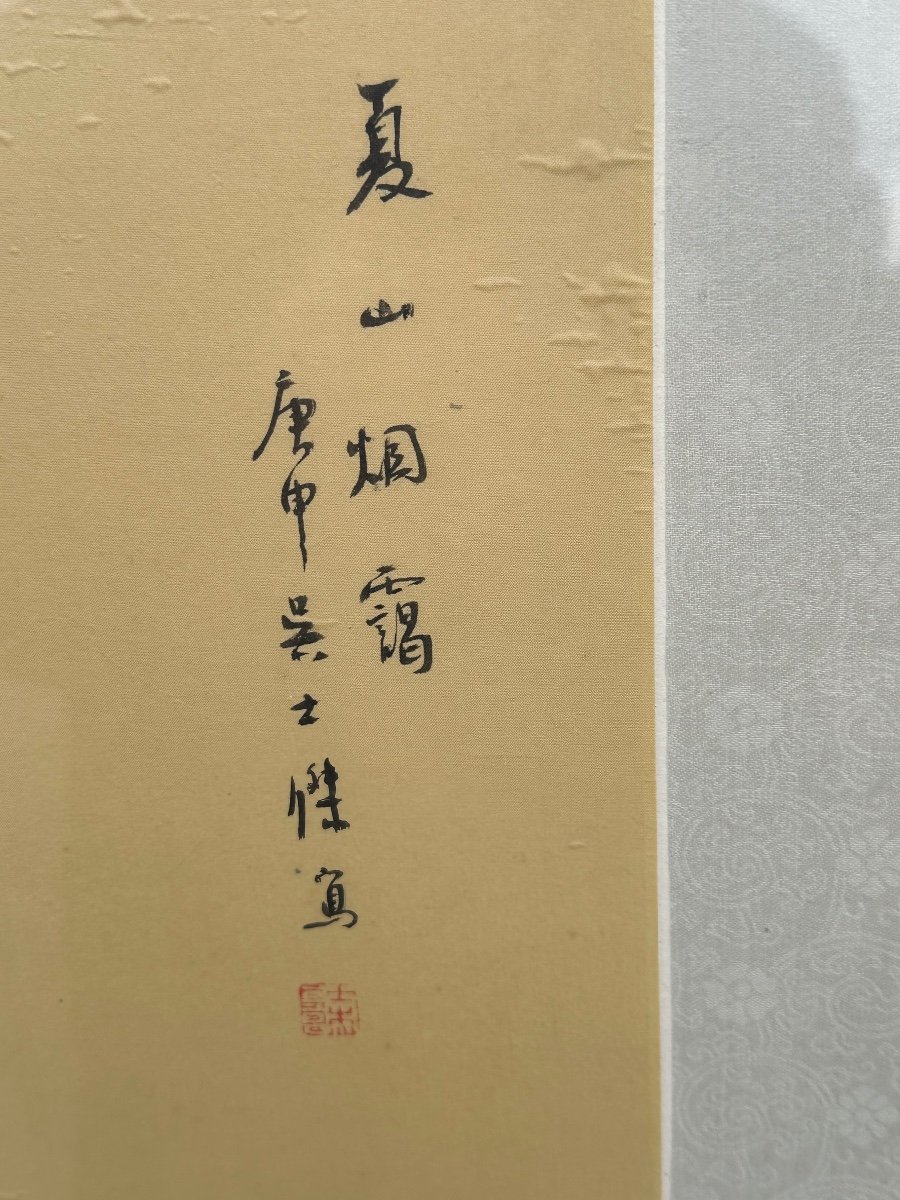 夏山烟靄
庚申吴士傑寫